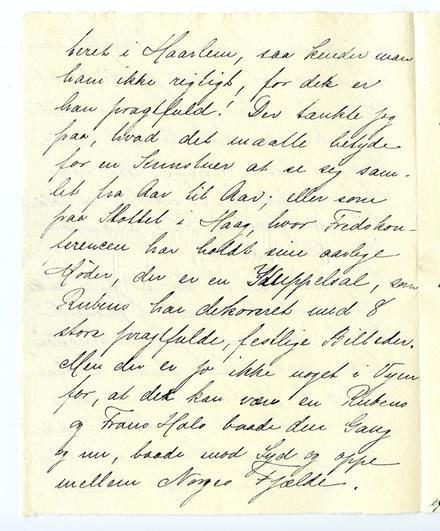 beret i Haarlem, saa kender man
ham ikke rigtigt, for der er
han pragtfuld! Der tænkte jeg
paa, hvad det maatte betyde
for en Kunstner at se sig sam-
let fra Aar til Aar; eller som
paa Slottet i Haag, hvor Fredskon-
ferencen har holdt sine aarlige
Møder, der er en Kuppelsal, som
Rubens har dekoreret med 8
store pragtfulde, festlige Billeder.
Men der er jo ikke noget i Vejen
for, at det kan være en Rubens
og Frans Hals baade den Gang
og nu, baade mod Syd og oppe
mellem Norges Fjælde.